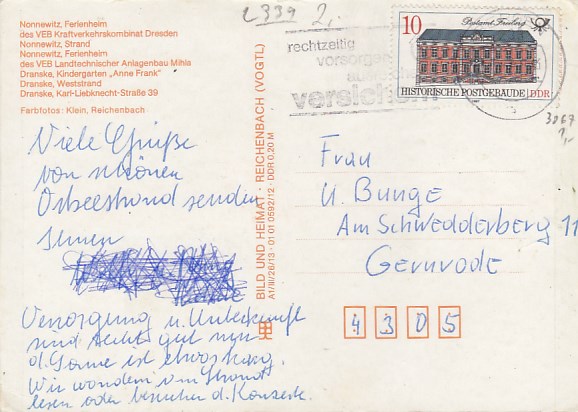 2339 2,-
Nonnewitz, Ferienheim
des VEB Kraftverkehrskombinat Dresden
Nonnewitz, Strand
Nonnewitz, Ferienheim
des VEB Landtechnischer Anlagenbau Mihla
Dranske, Kindergarten „Anne Frank"
Dranske, Weststrand
Dranske, Karl-Liebknecht-Straße 39
Farbfotos: Klein, Reichenbach
Viele Grüße
von schönen
Ostseestrand senden
Ihnen
Versorgung u. Unterkunft
sind recht gut nur
d. Sonne ist etwas
Wir wandern am Strand
lesen oder besuchen d. Konzerte.
BILD UND HEIMAT · REICHENBACH (VOGTL)
A1/III/26/13 · 01 01 0592/12 · DDR 0,20 M
rechtzeitig
vorsorgen
versichern
10
Postamt Freiberg
HISTORISCHE POSTGEBÄUDE DDR
3067
2,-
Frau
U. Bunge
Am Schwedderberg 11
Gernrode
4305